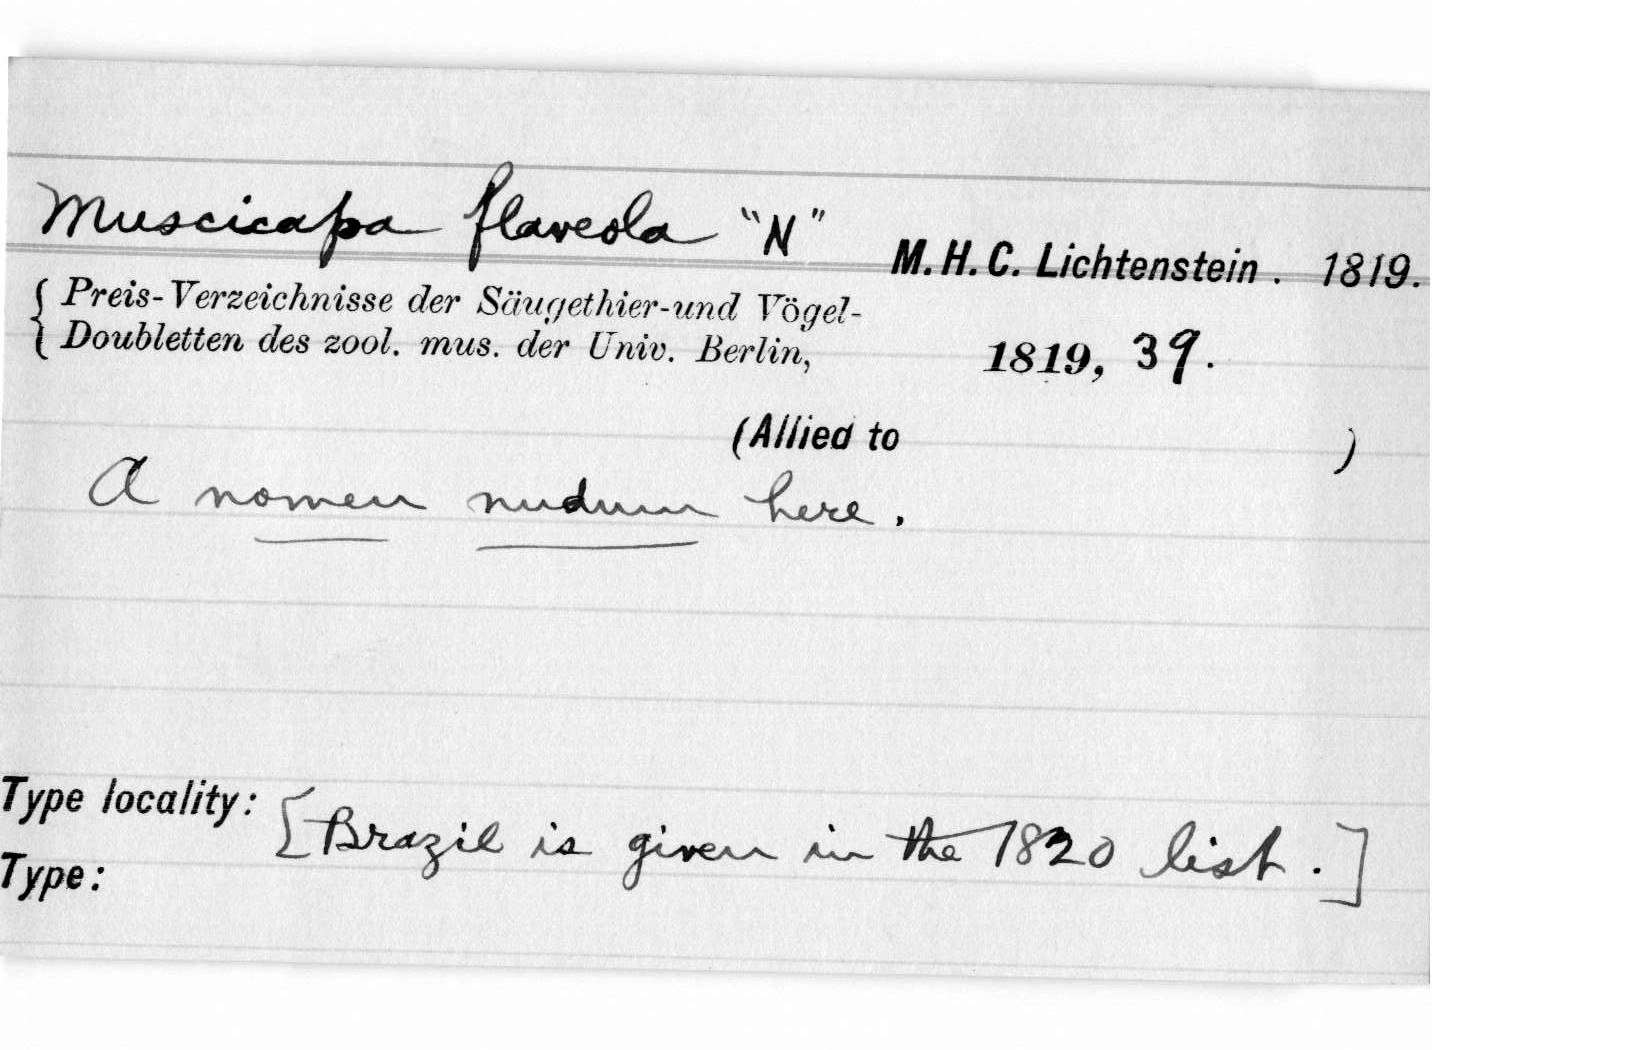 Muscicapa flaveola "N" M. H. C. Lichtenstein. 1819.
{ Preis-Verzeichnisse der Säugethier-und Vögel-
Doubletten des zool. mus. der Univ. Berlin, 1819, 39.
(Allied to )
A nomen nudum here.
Type locality: [Brazil is given in the 1820 list.]
Type: